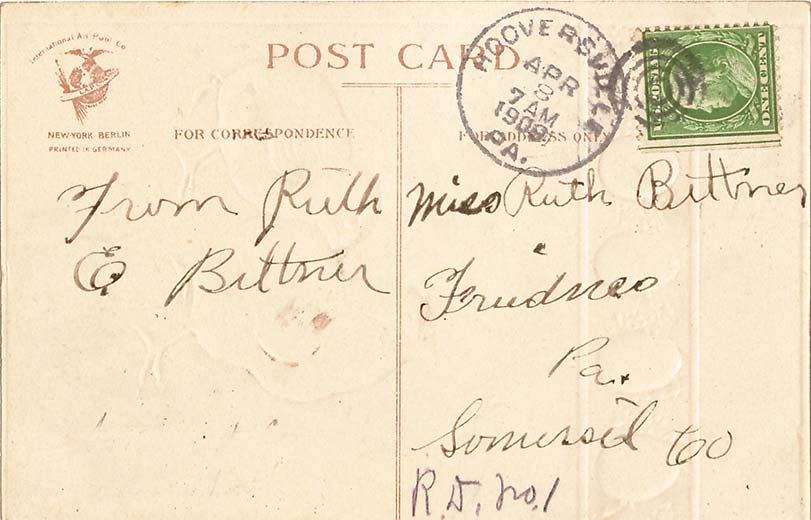 International Art Publ Co
NEW-YORK BERLIN
PRINTED IN GERMANY
POST CARD
FOR CORRESPONDENCE
FOR ADDRESS ONLY
HOOVERSVILLE
APR
8
7 AM
1909
PA.
From Ruth
E Bittner
Miss Ruth Bittner
Friedness
Pa.
Somerset Co
R.D. no. 1